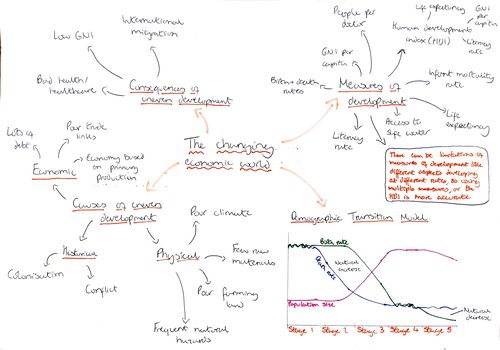 International
migration
Low GNI
Bad health/
healthcare
Consequences of
uneven development
People per
doctor
Life expectancy
GNI per
capita
Human development
index (HDI)
Literacy
rate
GNI per
capita
Birth + death
rates
Measures of
development
Infant mortality
rate
Life
expectancy
Access to
safe water
Literacy
rate
The changing
economic world
There can be limitations of
measures of development like
different aspects developing
at different rates, so using
multiple measures, or the
HDI is more accurate
Lots of
debt
Poor trade
links
Economic
Economy based
on primary
production
Causes of uneven
development
Historical
Colonisation
Conflict
Physical
Poor climate
Few raw
materials
Poor farming
land
Frequent natural
hazards
Demographic Transition Model
Birth rate
Death rate
Natural
increase
Population size
Natural
decrease
Stage 1 Stage 2 Stage 3 Stage 4 Stage 5